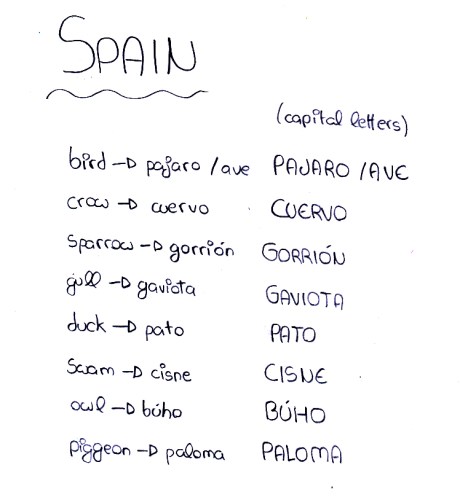 SPAIN
(capital letters)
bird → pajaro / ave PAJARO / AVE
crow → cuervo CUERVO
sparrow → gorrión GORRIÓN
gull → gaviota GAVIOTA
duck → pato PATO
swam → cisne CISNE
owl → búho BÚHO
piggeon → paloma PALOMA